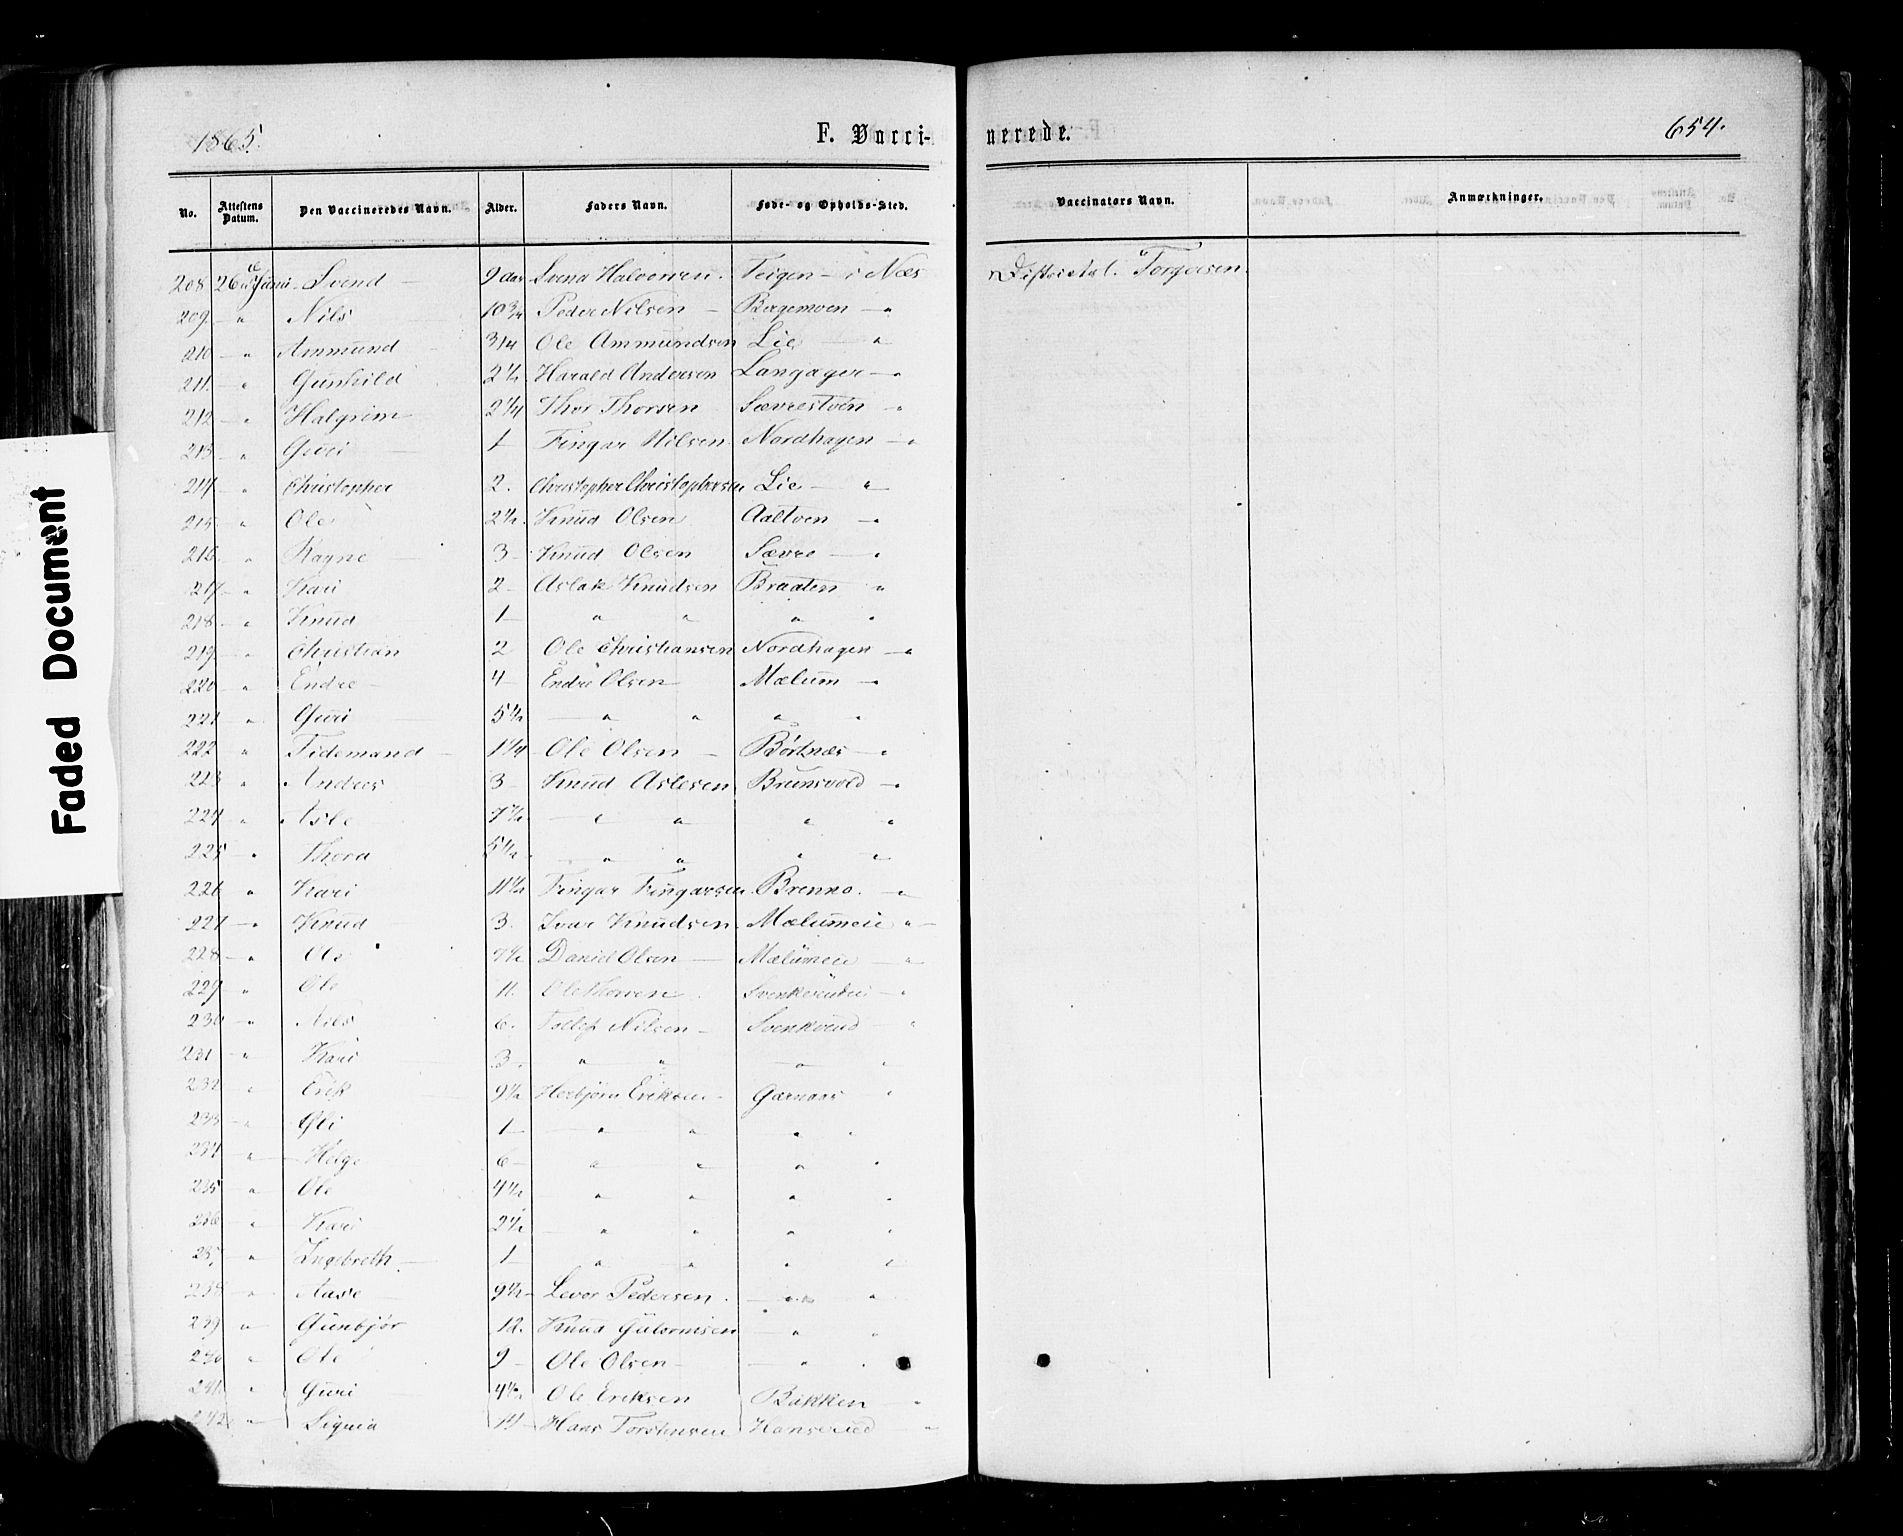 1865.
F. Vacci-
nerede.
654.
No. Attestens Datum. Den Vaccineredes Navn. Alder. Faders Navn. Føde- og Opholds-Sted. Vaccinators Navn. Anmærkninger.
208 26 Juni Svend 9 Aar Svend Halvorsen. Teigen - i Næs Districtsl. Torgersen
209 " Nils 10 3/4 Peder Nilsen Bergemoen "
210 " Ammund 3/4 Ole Ammundsen Lie "
211 " Gunhild 2 1/2 Harald Andersen Langager "
212 " Halgrim 2 1/4 Thor Thorsen Sævrestøen "
213 " Guri 1 Fingar Nilsen Nordhagen "
214 " Christopher 2. Christopher Christophersen Lie "
215 " Ole 2 1/2 Knud Olsen "
216 " Ragne 3 Knud Olsen Sævre "
217 " Kari 2 Aslak Knudsen Braaten "
218 " Knud 1 " " " "
219 " Christian 2 Ole Christiansen Nordhagen "
220 " Endre 4 Endre Olsen Mælum "
221 " Guri 5 1/2 " " " "
222 " Tidemand 1 1/4 Ole Olsen Børtnæs "
223 " Andres 3 Knud Aslesen Brunsvold "
224 " Asle 7 1/2 " " " "
225 " Thora 5 1/2 " " " "
226 " Kari 11 1/2 Fingar Fingarsen Brenno. "
227 " Knud 3. Ivar Knudsen Mælumeie "
228 " Ole 7 1/2 Daniel Olsen Mælumeie "
229 " Ole 11. Ole Thorsen "
230 " Nils 6. Tollef Nilsen Svenkerud "
231 " Kari 3. " " " "
232 " Erik 9 1/2 Herbjørn Eriksen Garnaas "
233 " 1 " " " "
234 " Helge 6 " " " "
235 " Ole 4 1/2 " " " "
236 " Kari 2 1/2 " " " "
237 " Ingebreth 1 " " " "
238 " Aase 9 1/2 Levor Pedersen. " "
239 " Gunbjør 12. Knud Guttormsen " "
240 " Ole 9 Ole Olsen " "
241 " Guri 4 1/2 Ole Eriksen Bakken "
242 " Signid 14 Hans Torstensen Hanserud "
Faded Document